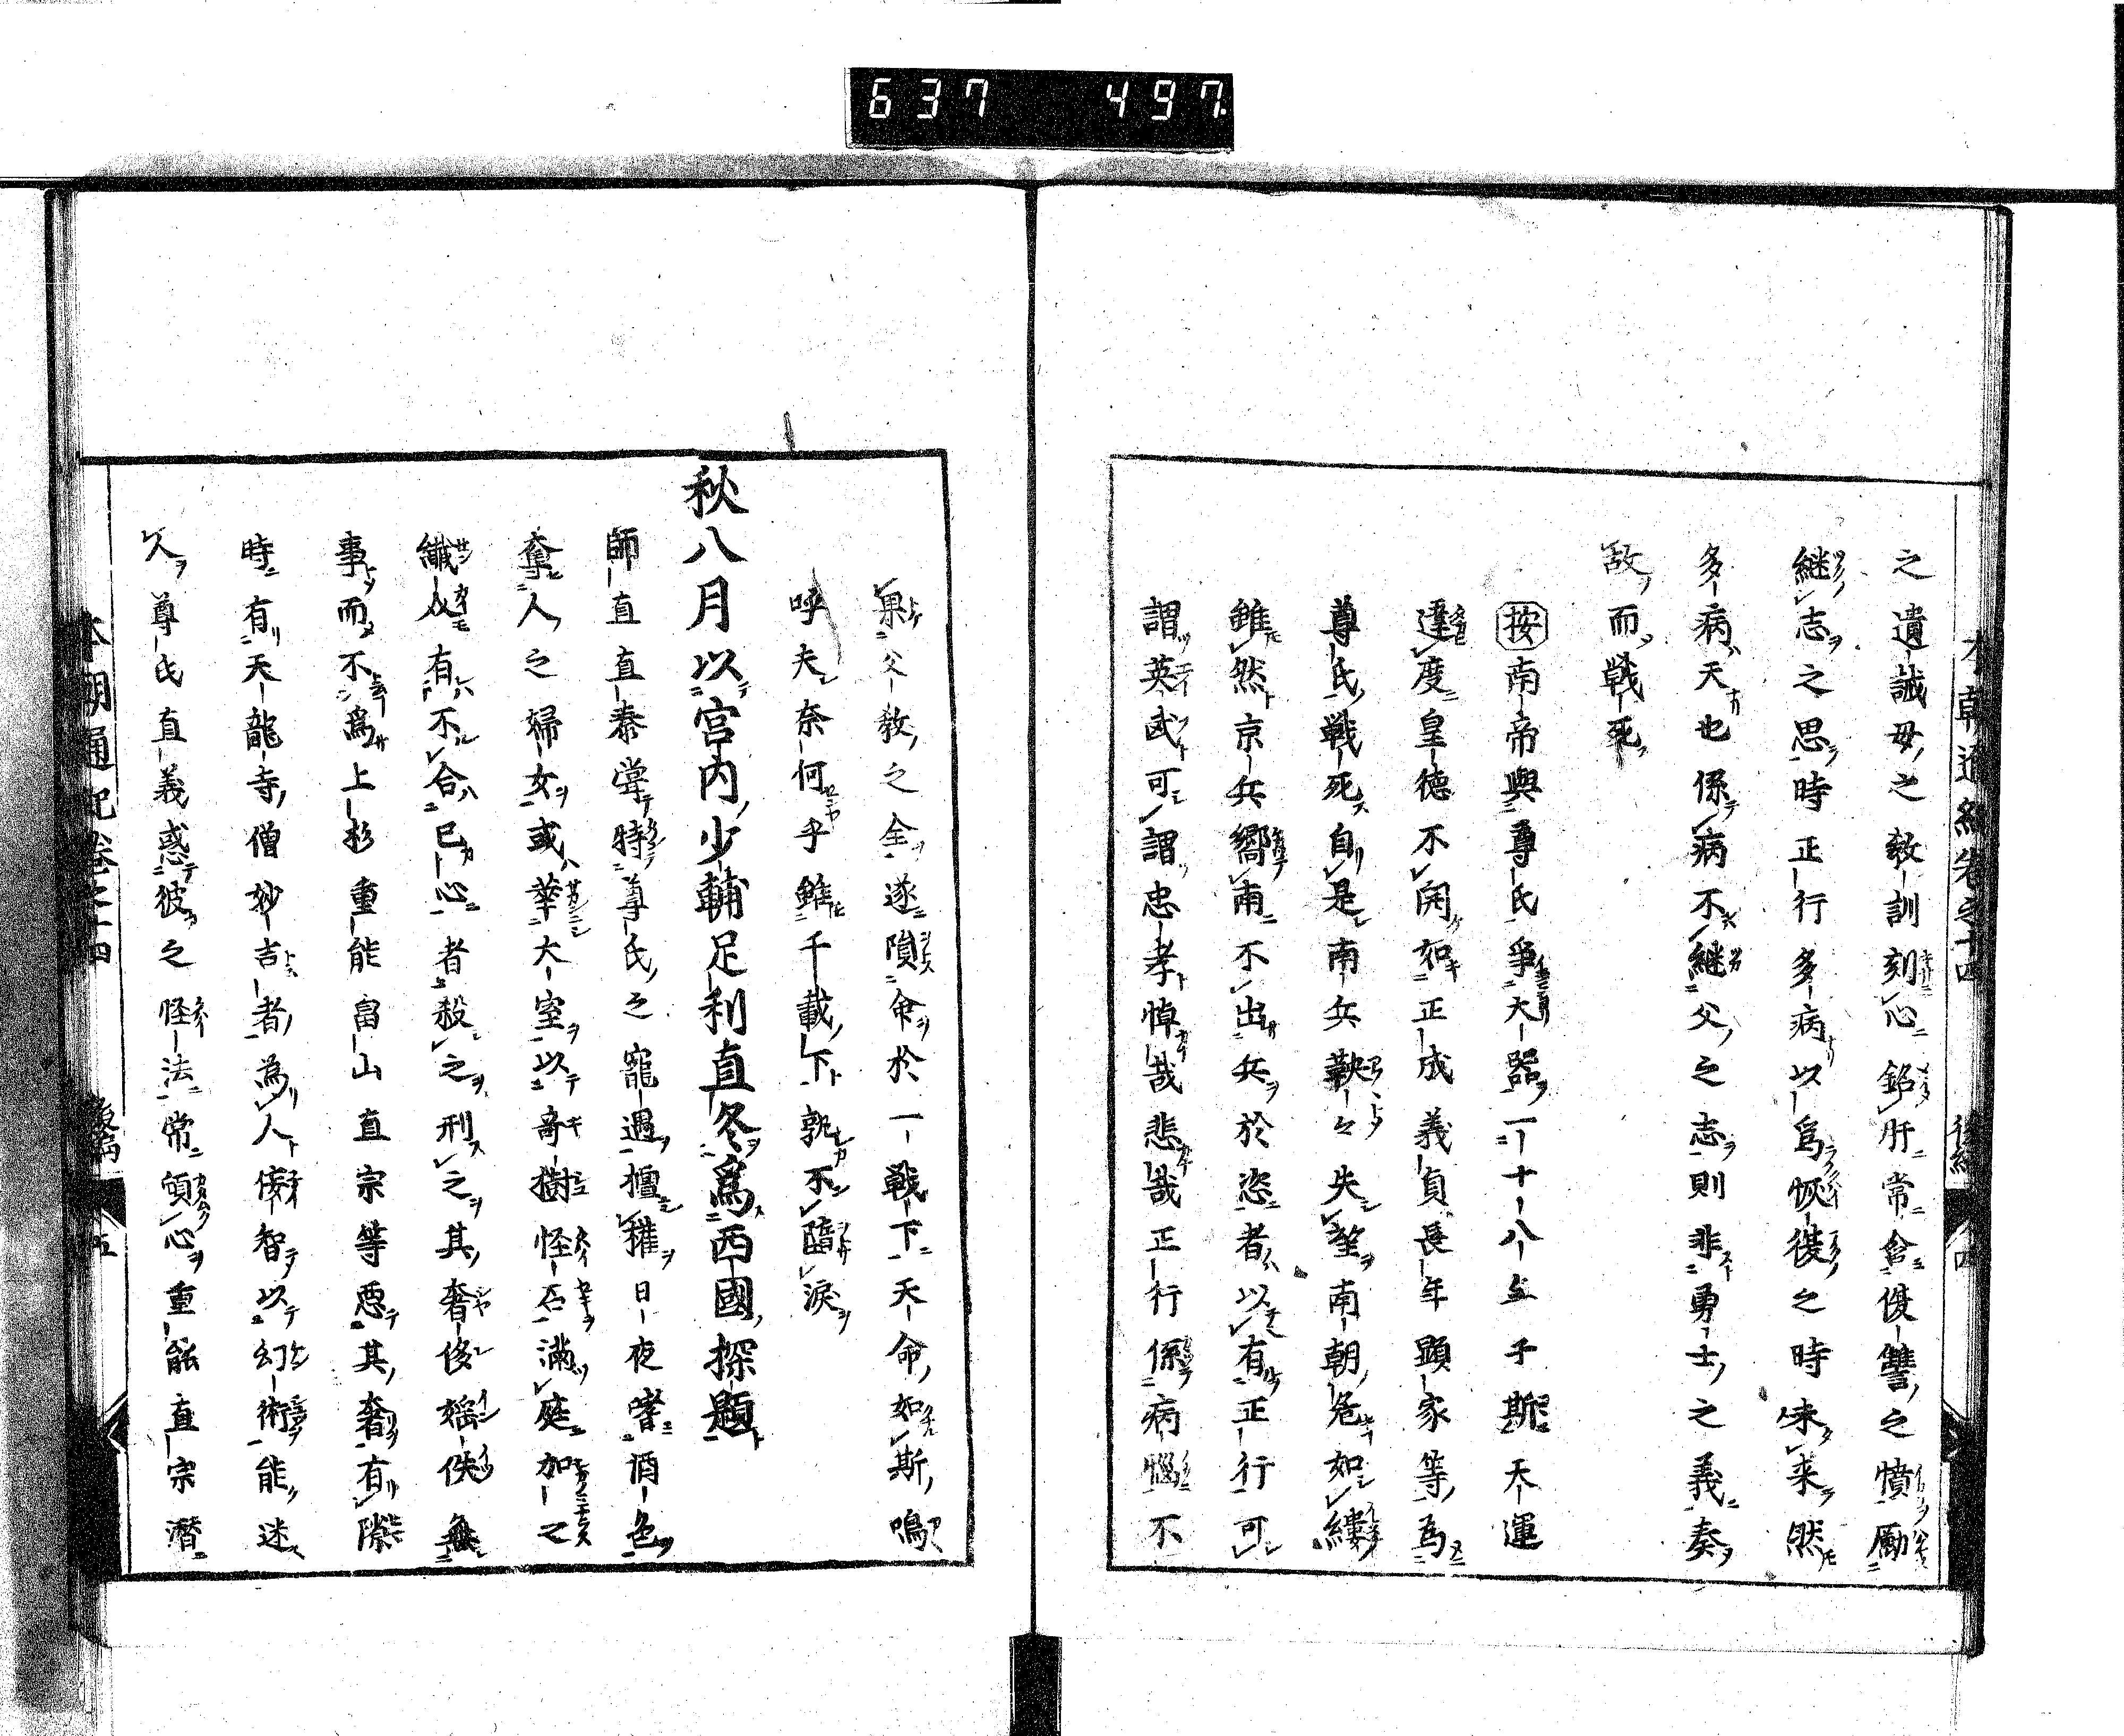 637 497
之遺誡毋之敎訓刻心銘肝常含復讐之憤勵
継志之思時正行多病以爲恢復之時未来然
多病天也係病不継父之志則非勇士之義奏
敌而戦死
按南帝與尊氏爭大器二十八年于斯天運
違度皇德不開如正成義貞長年顕家等爲
尊氏戦死自是南兵鞅々失望南朝危如縷
雖然京兵嚮南不出兵於恣者以有正行可
謂英武可謂忠孝悼哉悲哉正行係病惱不
本朝通紀卷之十四 後編 四
果父敎之全遂隕命於一戦下天命如斯鳴
呼夫奈何乎雖千載下孰不臨淚
秋八月以宮內少輔足利直冬爲西國探題
師直直泰甞特尊氏之寵遇擅權日夜嗜酒色
奪人之婦女或華大室以奇樹怪石滿庭加之
纖人有不合已心者殺之刑之其奢侈婬佚無
事而不爲上杉重能畠山直宗等惡其奢有隙
時有天龍寺僧妙吉者為人倭智以幻術能迷
人尊氏直義惑彼之怪法常傾心重能直宗潛
本朝通紀卷之十四 後編 五